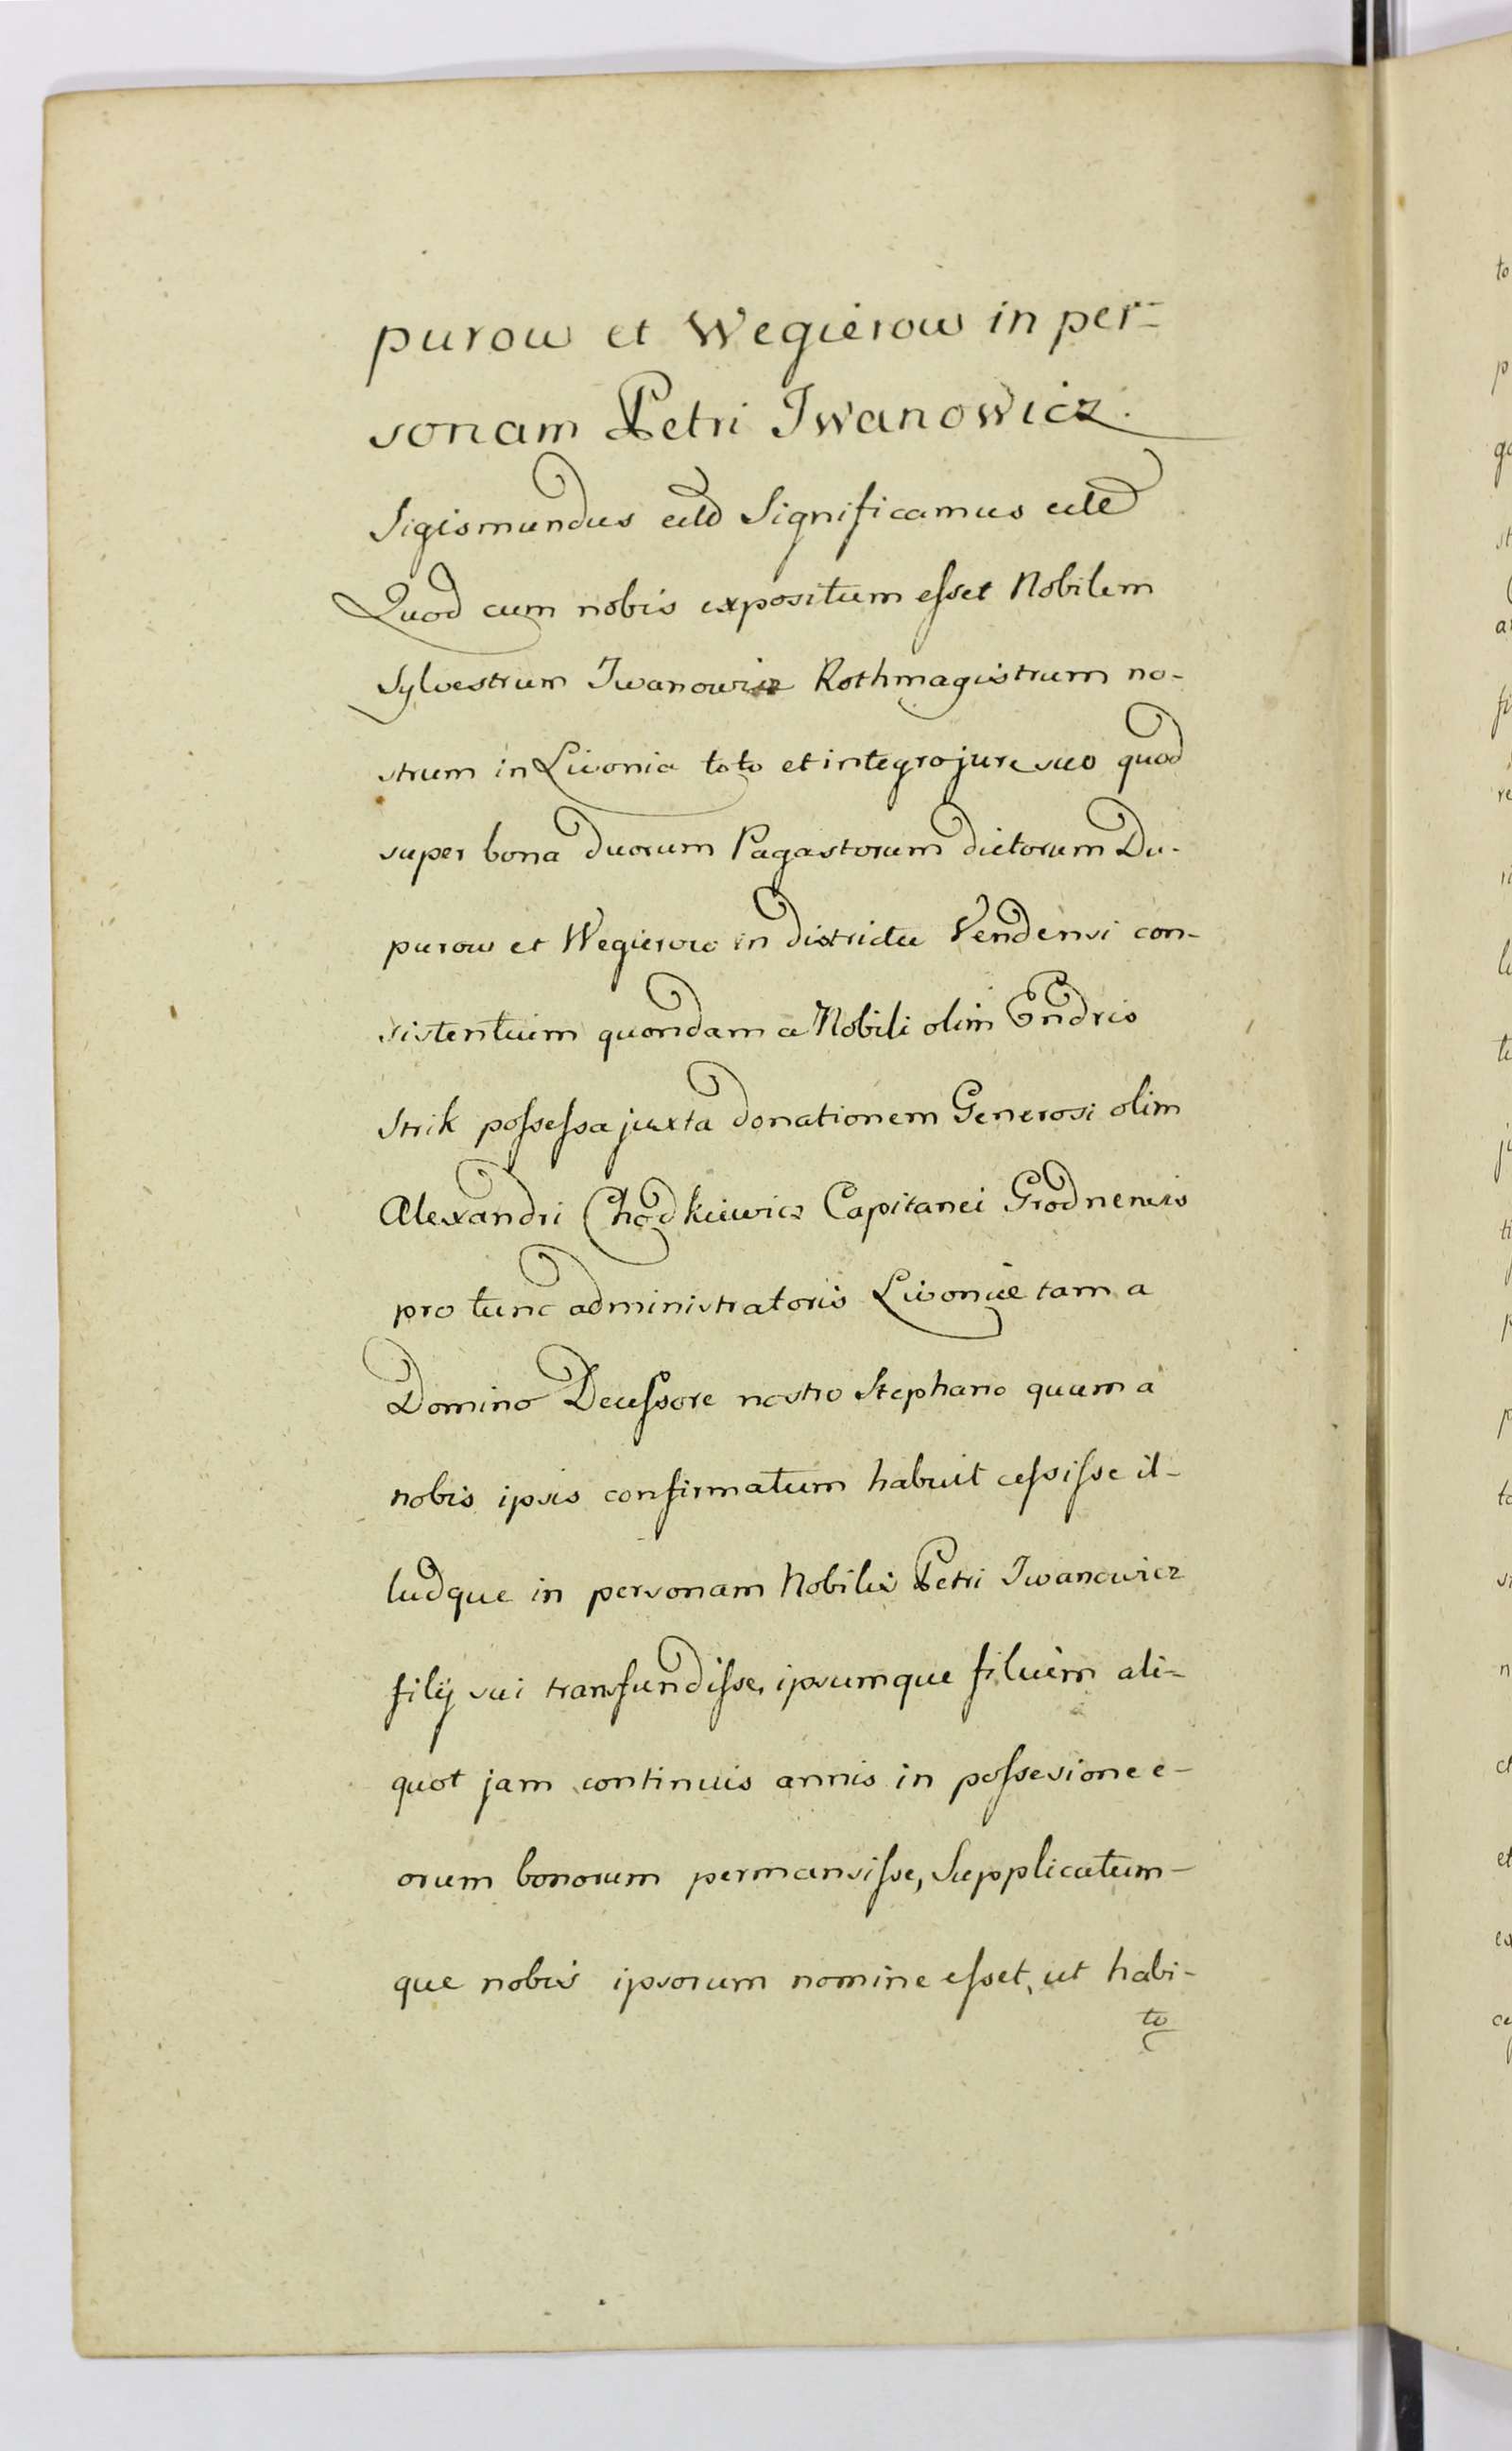 purow et Wegierow in per=
sonam Petri Iwanowicz.
Sigismundus etld Significamus etle
Quod cum nobis expositum eſset Nobilem
Sylvestrum Iwanowicz Rothmagistrum no-
strum in Livonia toto et integro jure suo quod
super bona duorum Pagastorum dictorum Du-
purow et Wegierow in districtu Vendensi con-
sistentium quondam a Nobili olim Endris
Strik poſseſsa juxta donationem Generosi olim
Alexandri Chodkiewicz Capitanei Grodnensis
pro tunc administratoris Livoniæ tam a
Domino Deceſsore nostro Stephano quam a
nobis ipsis confirmatum habuit ceſsiſse il-
ludque in personam Nobilis Petri Iwanowicz
filij sui transfundiſse, ipsumque filium ali-
quot jam continuis annis in poſsesione e-
orum bonorum permansiſse, Supplicatum-
que nobis ipsorum nomine eſset, ut habi-
to